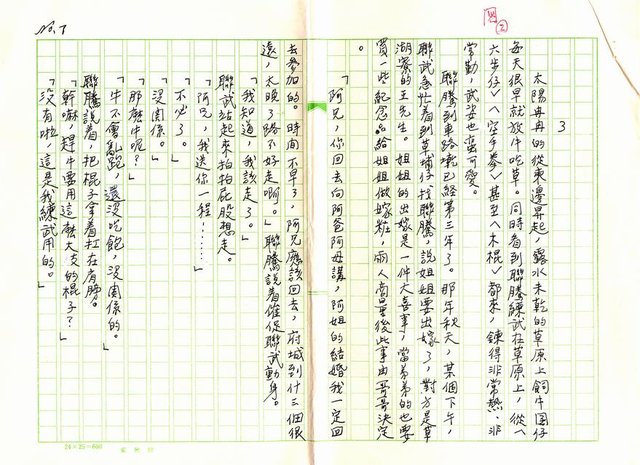 No. 7
3
太陽冉冉的從東邊昇起，露水未乾的草原上飼牛囝仔
每天很早就放牛吃草。同時看到聯騰練武在草原上，從︿
六步仔﹀︿空手拳﹀甚至︿木棍﹀都來，鍊得非常熱，非
常勤，武姿也蠻可愛。
聯騰到車路墘已經第三年了。那年秋天，某個下午，
聯武急忙着到草埔仔找聯騰，說姐姐要出嫁了，對方是草
湖寮的王先生。姐姐的出嫁是一件大喜事，當弟弟的也要
買一些紀念品給姐姐做嫁粧，兩人商量後此事由哥哥決定
。
「阿兄，你回去向阿爸阿母講，阿姐的結婚我一定回
去參加的。時間不早了，阿兄應該回去，府城到什三個很
遠，太晚了路不好走啊。」聯騰說着催促聯武動身。
「我知道，我該走了。」
聯武站起來拍拍屁股想走。
「阿兄，我送你一程……」
「不必了。」
「沒關係。」
「那麽牛呢？」
「牛不會亂跑，還沒吃飽，沒關係的。」
聯騰說着，把棍子拿着扛在肩膀。
「幹嘛，趕牛要用這麽大支的棍子？」
「沒有啦，這是我練武用的。」
24×25=600